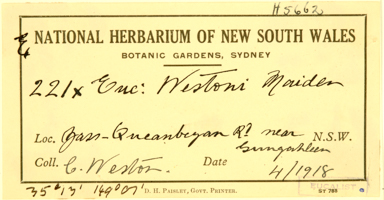 H5662
NATIONAL HERBARIUM OF NEW SOUTH WALES
BOTANIC GARDENS, SYDNEY
221x Euc: Westoni Maiden
Loc. Yass-Queanbeyan Rd near N.S.W.
Gungahleen
Coll. C. Weston. Date 4/1918
35°13' 149°07'
D. H. PAISLEY, GOVT. PRINTER.
ST 788